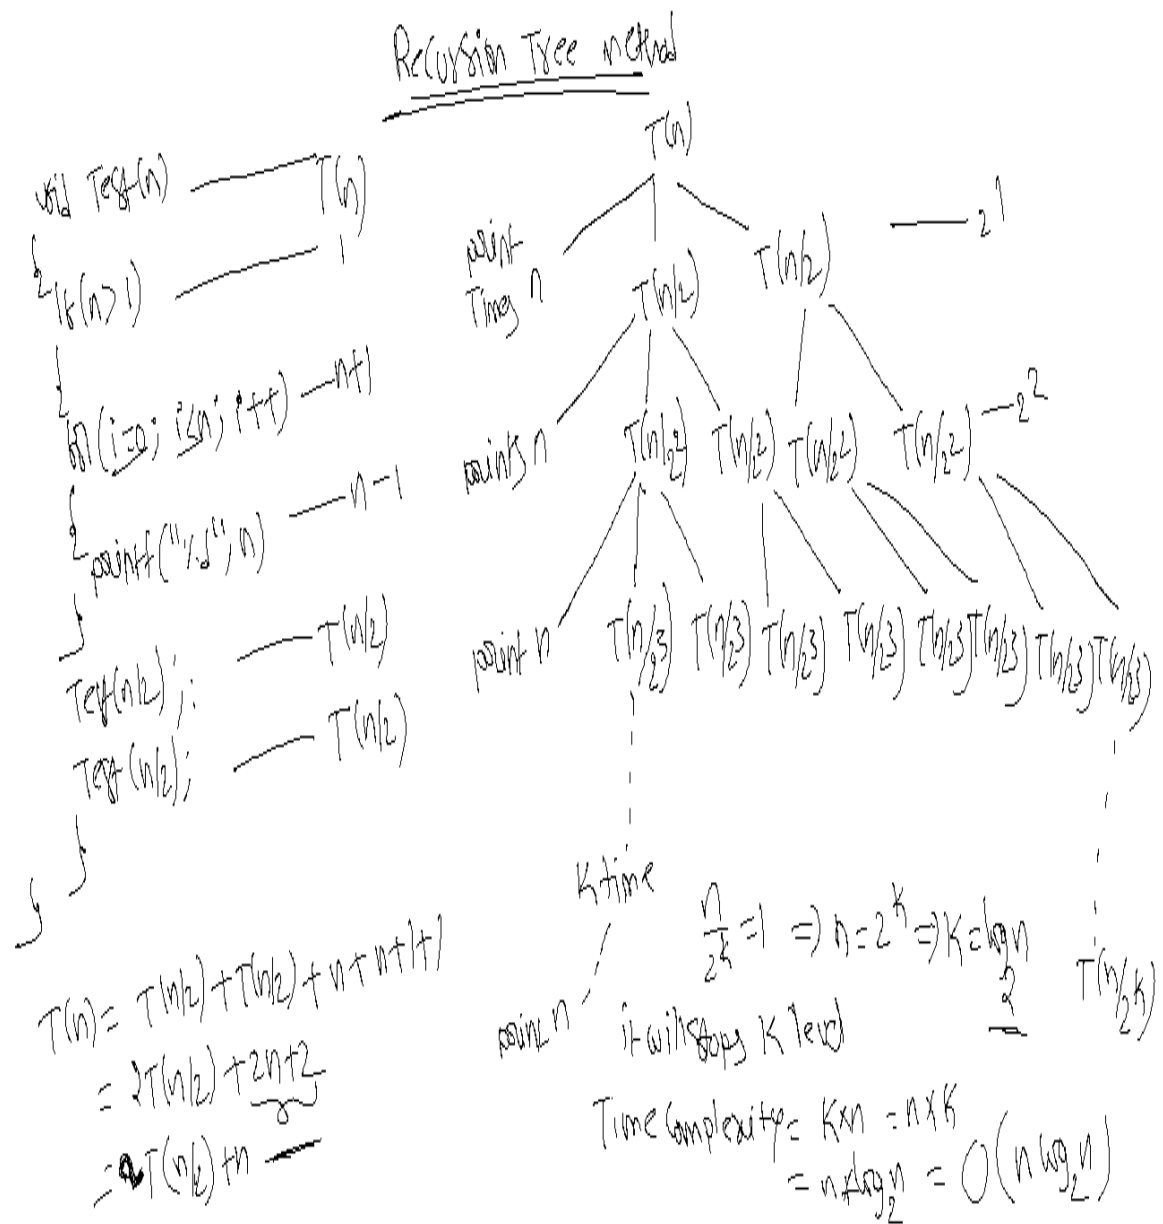 Recursion Tree method
void Test(n) — T(n)
{
if(n>1) — 1
{
for(i=0; i<n; i++) — n+1
{
printf("%d", n) — n-1
}
Test(n/2); — T(n/2)
Test(n/2); — T(n/2)
}
}
T(n) = T(n/2)+T(n/2)+n+n+1+1
= 2T(n/2)+2n+2
= 2T(n/2)+n
T(n)
print Times n
T(n/2) T(n/2) — 2^1
prints n
T(n/2^2) T(n/2^2) T(n/2^2) T(n/2^2) — 2^2
print n
T(n/2^3) T(n/2^3) T(n/2^3) T(n/2^3) T(n/2^3) T(n/2^3) T(n/2^3) T(n/2^3)
K time
n/2^k = 1 => n = 2^k => K = log n
2
T(n/2^k)
print n
it will stops K level
Time Complexity = K×n = n×K
= n×log_2 n = O(n log_2 n)